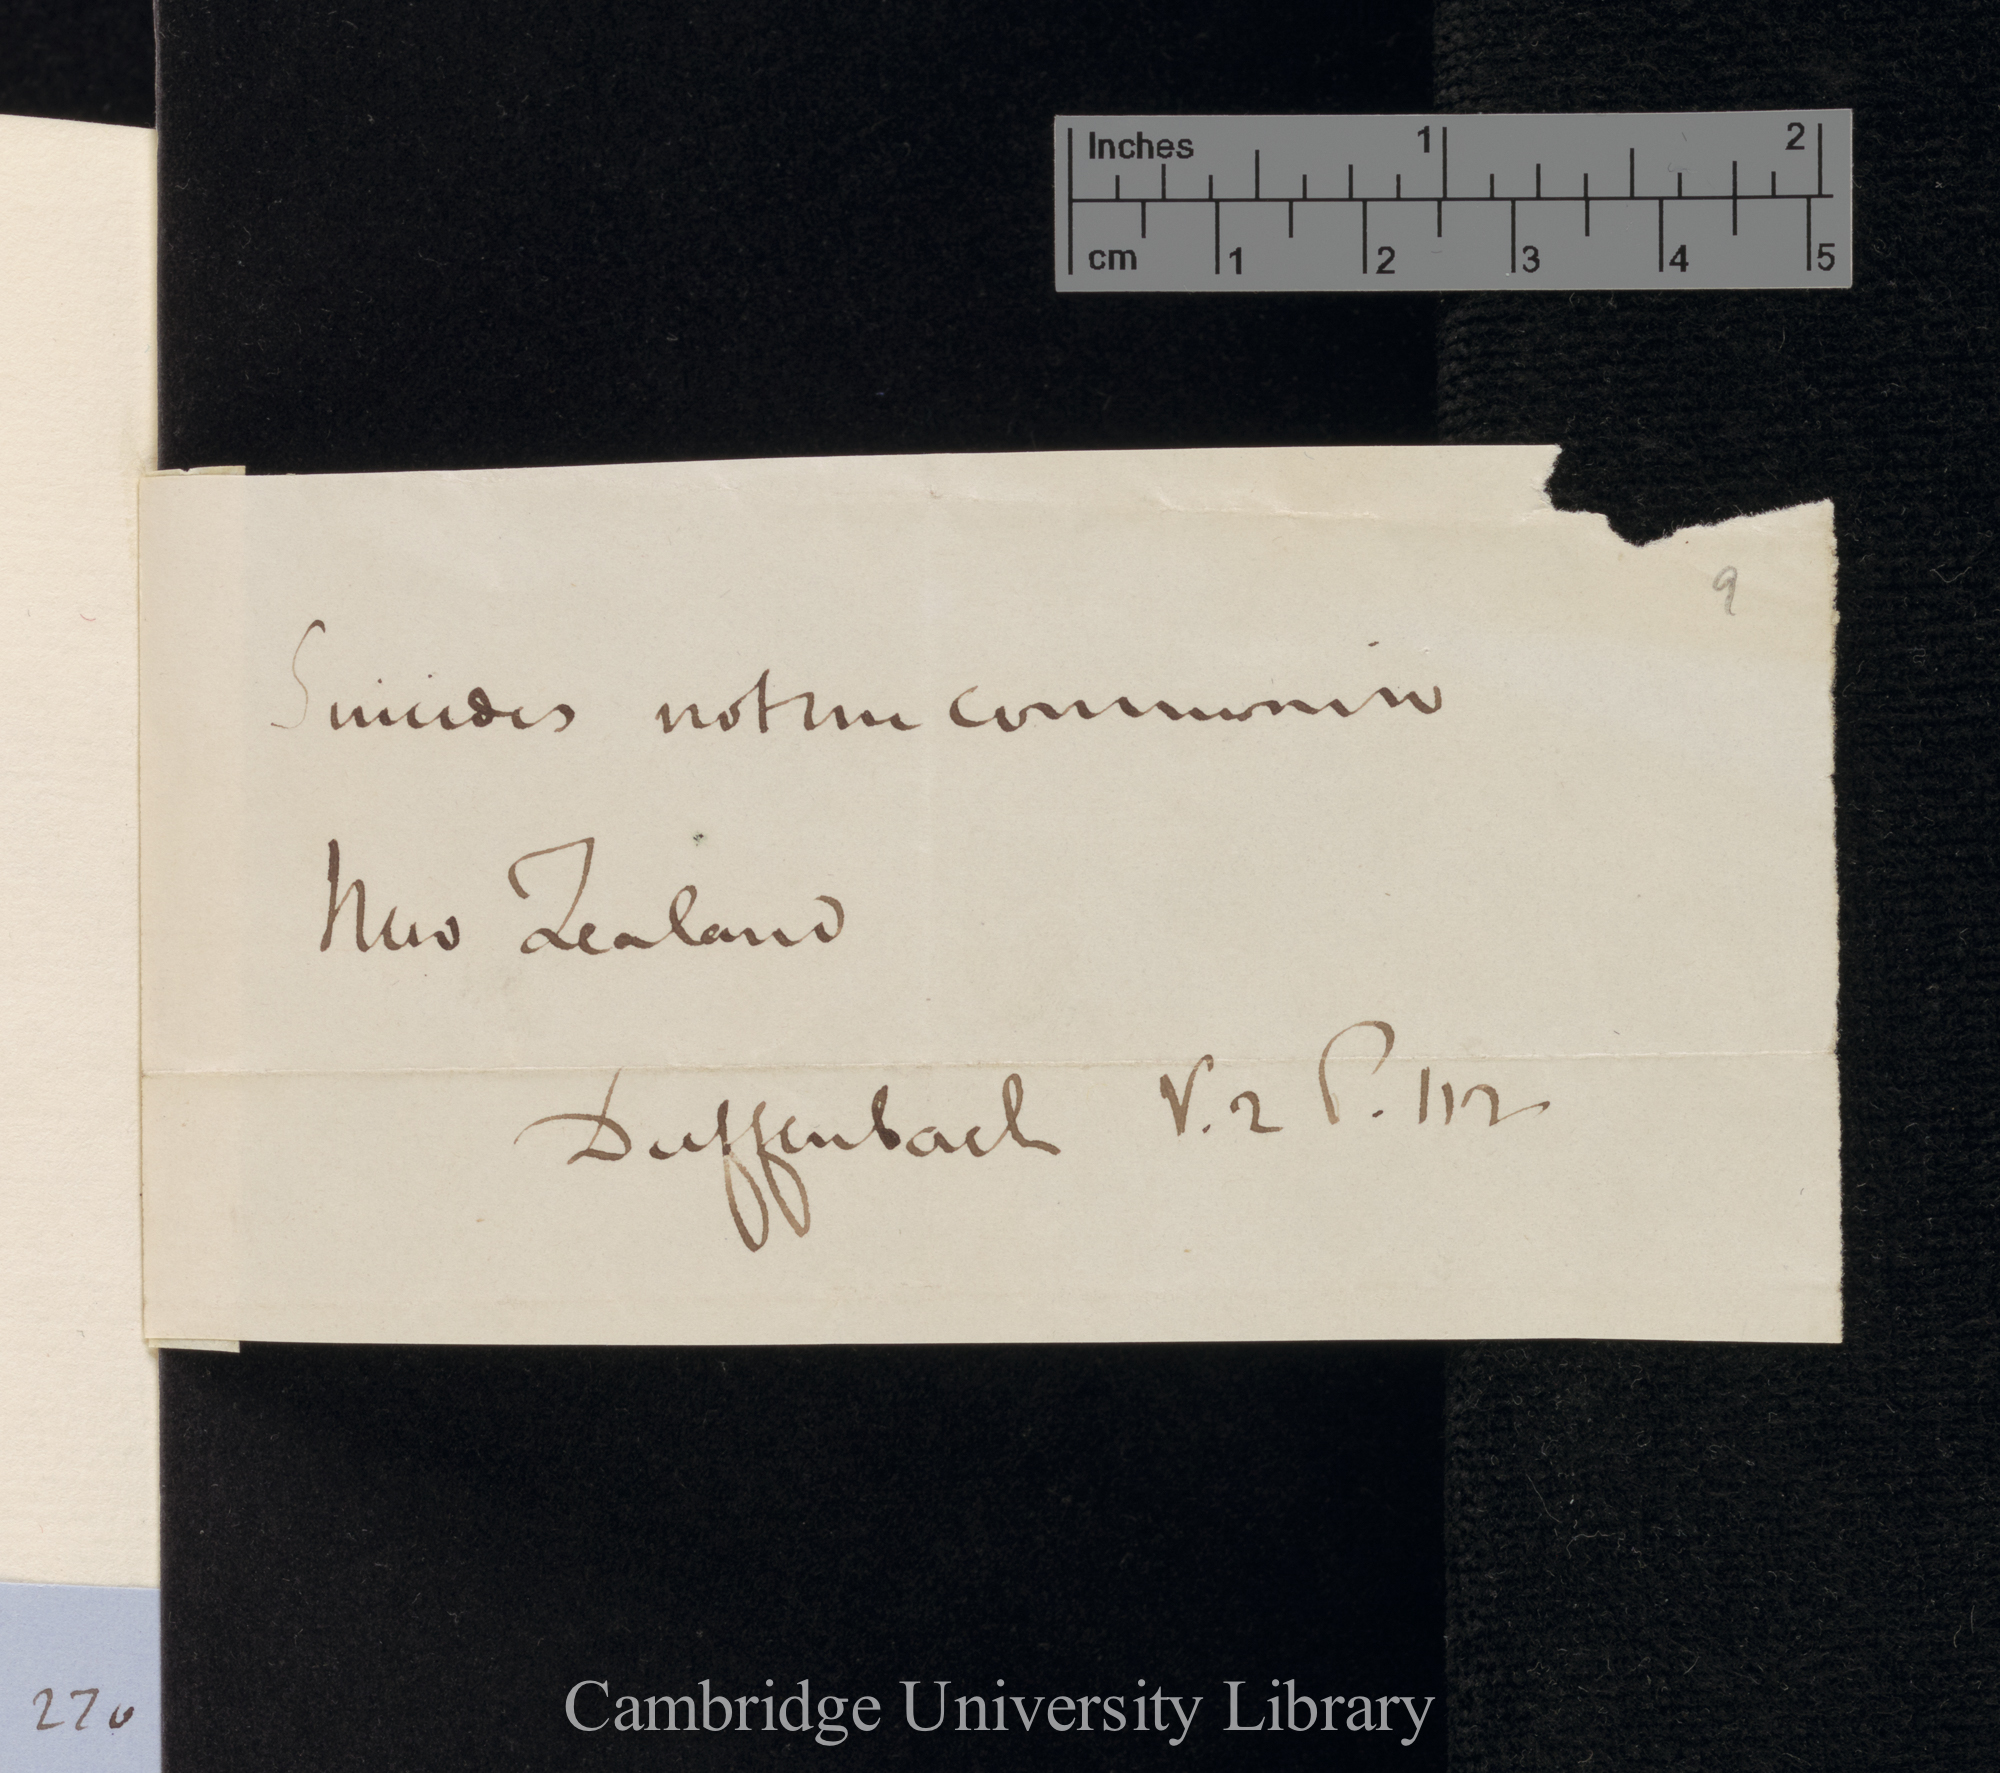 Inches 1 2
cm 1 2 3 4 5
9
Suicides not un common in
New Zealand
Dieffenbach V. 2 P. 112
270
Cambridge University Library